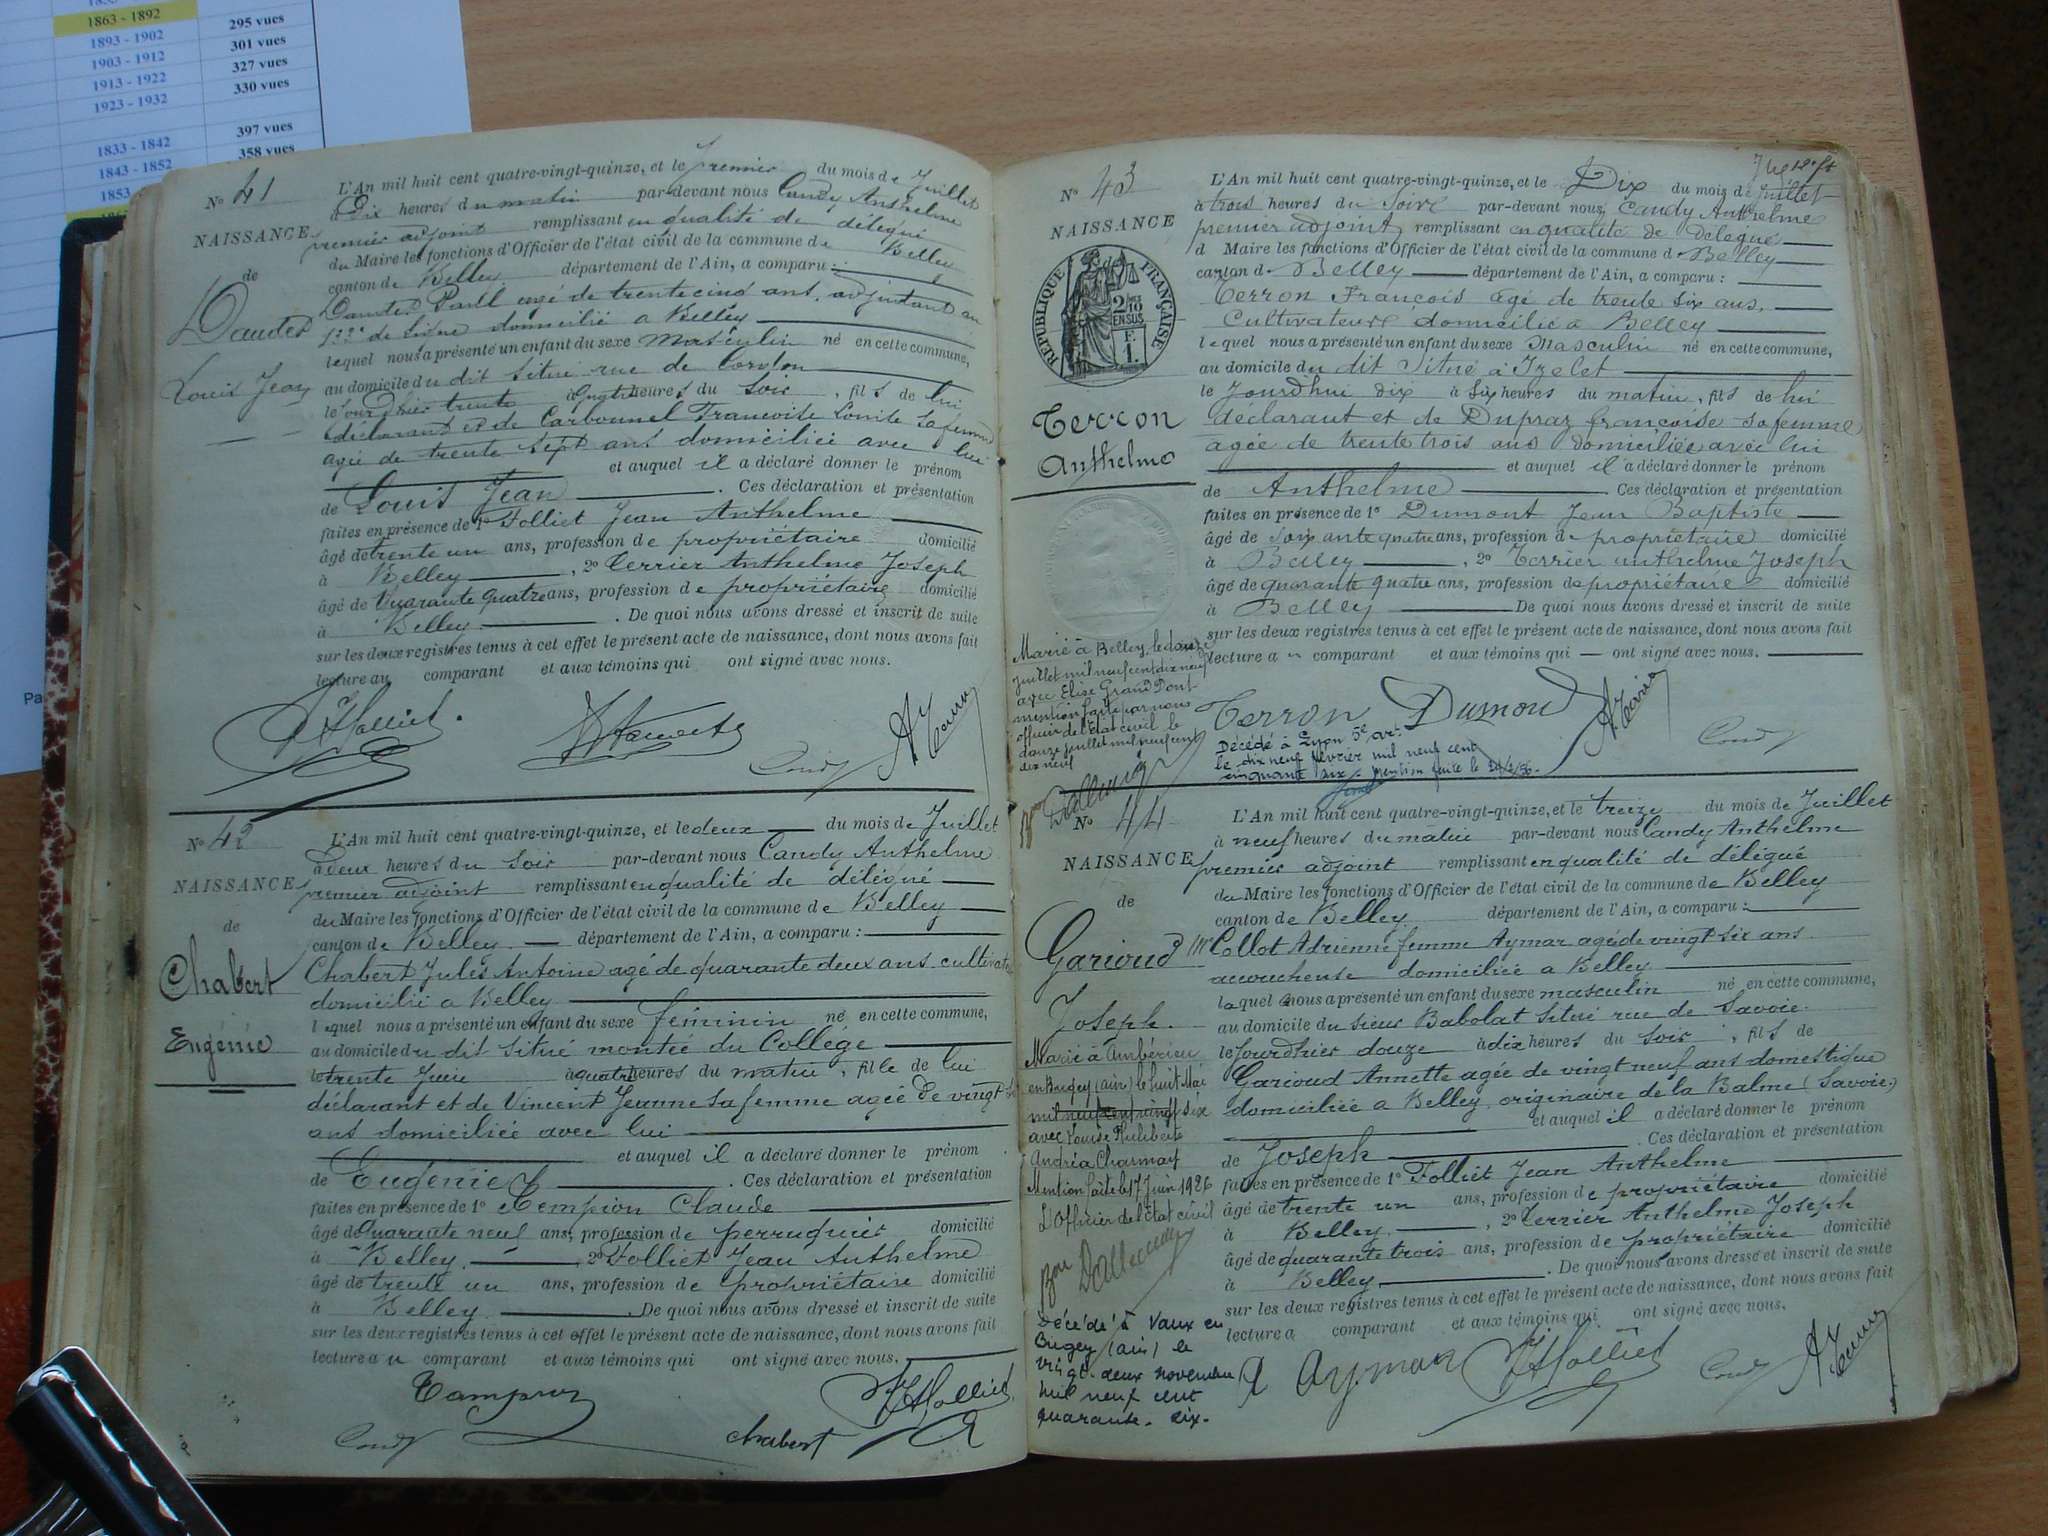 1863 - 1892
1893 - 1902 295 vues
1903 - 1912 301 vues
1913 - 1922 327 vues
1923 - 1932 330 vues
1833 - 1842 397 vues
1843 - 1852 358 vues
1853
Pa
No 41
NAISSANCE
de
Daudes
Louis Jean
L'An mil huit cent quatre-vingt-quinze, et le premier du mois de Juillet
à Dix heures du matin par-devant nous Candy Anthelme
premier adjoint remplissant en qualité de délégué
du Maire les fonctions d'Officier de l'état civil de la commune de Belley
canton de Belley département de l'Ain, a comparu :
Paull agé de trente cinq ans, adjudant au
de ligne domicilié a Belley
lequel nous a présenté un enfant du sexe masculin né en cette commune,
au domicile du dit situé rue de
le jourdhier trente à heures du soir, fils de lui
déclarant et de Carbonnel Francoise Louise sa femme
agée de trente sept ans domiciliée avec lui
et auquel il a déclaré donner le prénom
de Louis Jean. Ces déclaration et présentation
faites en présence de 1o Folliet Jean Anthelme
âgé de trente un ans, profession de propriétaire domicilié
à Belley, 2o Terrier Anthelme Joseph
âgé de Quarante quatre ans, profession de propriétaire domicilié
à Belley. De quoi nous avons dressé et inscrit de suite
sur les deux registres tenus à cet effet le présent acte de naissance, dont nous avons fait
lecture au comparant et aux témoins qui ont signé avec nous.
No 42
NAISSANCE
de
Chabert
Eugénie
L'An mil huit cent quatre-vingt-quinze, et le deux du mois de Juillet
à deux heures du soir par-devant nous Candy Anthelme
premier adjoint remplissant en qualité de délégué
du Maire les fonctions d'Officier de l'état civil de la commune de Belley
canton de Belley département de l'Ain, a comparu :
Chabert Jules Antoine agé de quarante deux ans
domicilié a Belley
lequel nous a présenté un enfant du sexe féminin né en cette commune,
au domicile du dit situé montée du Collége
le trente Juin à quatre heures du matin, fille de lui
déclarant et de Vincent Jeanne sa femme agée de vingt
ans domiciliée avec lui
et auquel il a déclaré donner le prénom
de Eugénie. Ces déclaration et présentation
faites en présence de 1o Tempion Claude
âgé de Quarante neuf ans, profession de perruquier domicilié
à Belley, 2o Folliet Jean Anthelme
âgé de trente un ans, profession de propriétaire domicilié
à Belley. De quoi nous avons dressé et inscrit de suite
sur les deux registres tenus à cet effet le présent acte de naissance, dont nous avons fait
lecture au comparant et aux témoins qui ont signé avec nous.
Chabert
No 43
NAISSANCE
RÉPUBLIQUE FRANÇAISE
2/10
EN SUS
F.
1.
Terron
Anthelme
L'An mil huit cent quatre-vingt-quinze, et le Dix du mois de Juillet
à trois heures du soir par-devant nous Candy Anthelme
premier adjoint remplissant en qualité de délégué
d Maire les fonctions d'Officier de l'état civil de la commune d Belley
canton d Belley département de l'Ain, a comparu :
Terron François agé de trente six ans,
Cultivateur domicilié à Belley
lequel nous a présenté un enfant du sexe Masculin né en cette commune,
au domicile du dit situé à Izelet
le Jourdhui dix à six heures du matin, fils de lui
déclarant et de Dupraz françoise sa femme
agée de trente trois ans domiciliée avec lui
et auquel il a déclaré donner le prénom
de Anthelme. Ces déclaration et présentation
faites en présence de 1o Dumont Jean Baptiste
âgé de soixante quatre ans, profession de propriétaire domicilié
à Belley, 2o Terrier anthelme Joseph
âgé de quarante quatre ans, profession de propriétaire domicilié
à Belley De quoi nous avons dressé et inscrit de suite
sur les deux registres tenus à cet effet le présent acte de naissance, dont nous avons fait
lecture a comparant et aux témoins qui ont signé avec nous.
Marié à Belley, le douze
juillet mil neuf cent dix neuf
avec Elise Grand Pont
mention faite par nous
officier de l'état civil le
douze juillet mil neuf cent
dix neuf
Terron Dumont
Décédé à Lyon 5e ar.
le dix neuf février mil neuf cent
cinquante six. Mention faite le
No 44
NAISSANCE
de
Garioud
Joseph.
L'An mil huit cent quatre-vingt-quinze, et le treize du mois de Juillet
à neuf heures du matin par-devant nous Candy Anthelme
premier adjoint remplissant en qualité de délégué
du Maire les fonctions d'Officier de l'état civil de la commune de Belley
canton de Belley département de l'Ain, a comparu :
Collot Adrienne femme Aymar agé de vingt six ans
accoucheuse domiciliée a Belley
laquelle nous a présenté un enfant du sexe masculin né en cette commune,
au domicile du sieur Babolat situé rue de Savoie.
le jourdhier douze à dix heures du soir, fils de
Garioud Annette agée de vingt neuf ans domestique
domiciliée a Belley, originaire de la Balme (Savoie)
et auquel il a déclaré donner le prénom
de Joseph. Ces déclaration et présentation
faites en présence de 1o Folliet Jean Anthelme
âgé de trente un ans, profession de propriétaire domicilié
à Belley, 2o Terrier Anthelme Joseph
âgé de quarante trois ans, profession de propriétaire domicilié
à Belley. De quoi nous avons dressé et inscrit de suite
sur les deux registres tenus à cet effet le présent acte de naissance, dont nous avons fait
lecture a comparant et aux témoins qui ont signé avec nous.
Marié à Ambérieu
en Bugey (ain) le huit Mai
mil neuf cent vingt six
avec Louise
Andréa Charmay
Mention faite le 17 Juin 1926
L'Officier de l'état civil
Décédé à Vaux en
Bugey (ain) le
vingt-deux novembre
mil neuf cent
quarante-six.
A Aymar